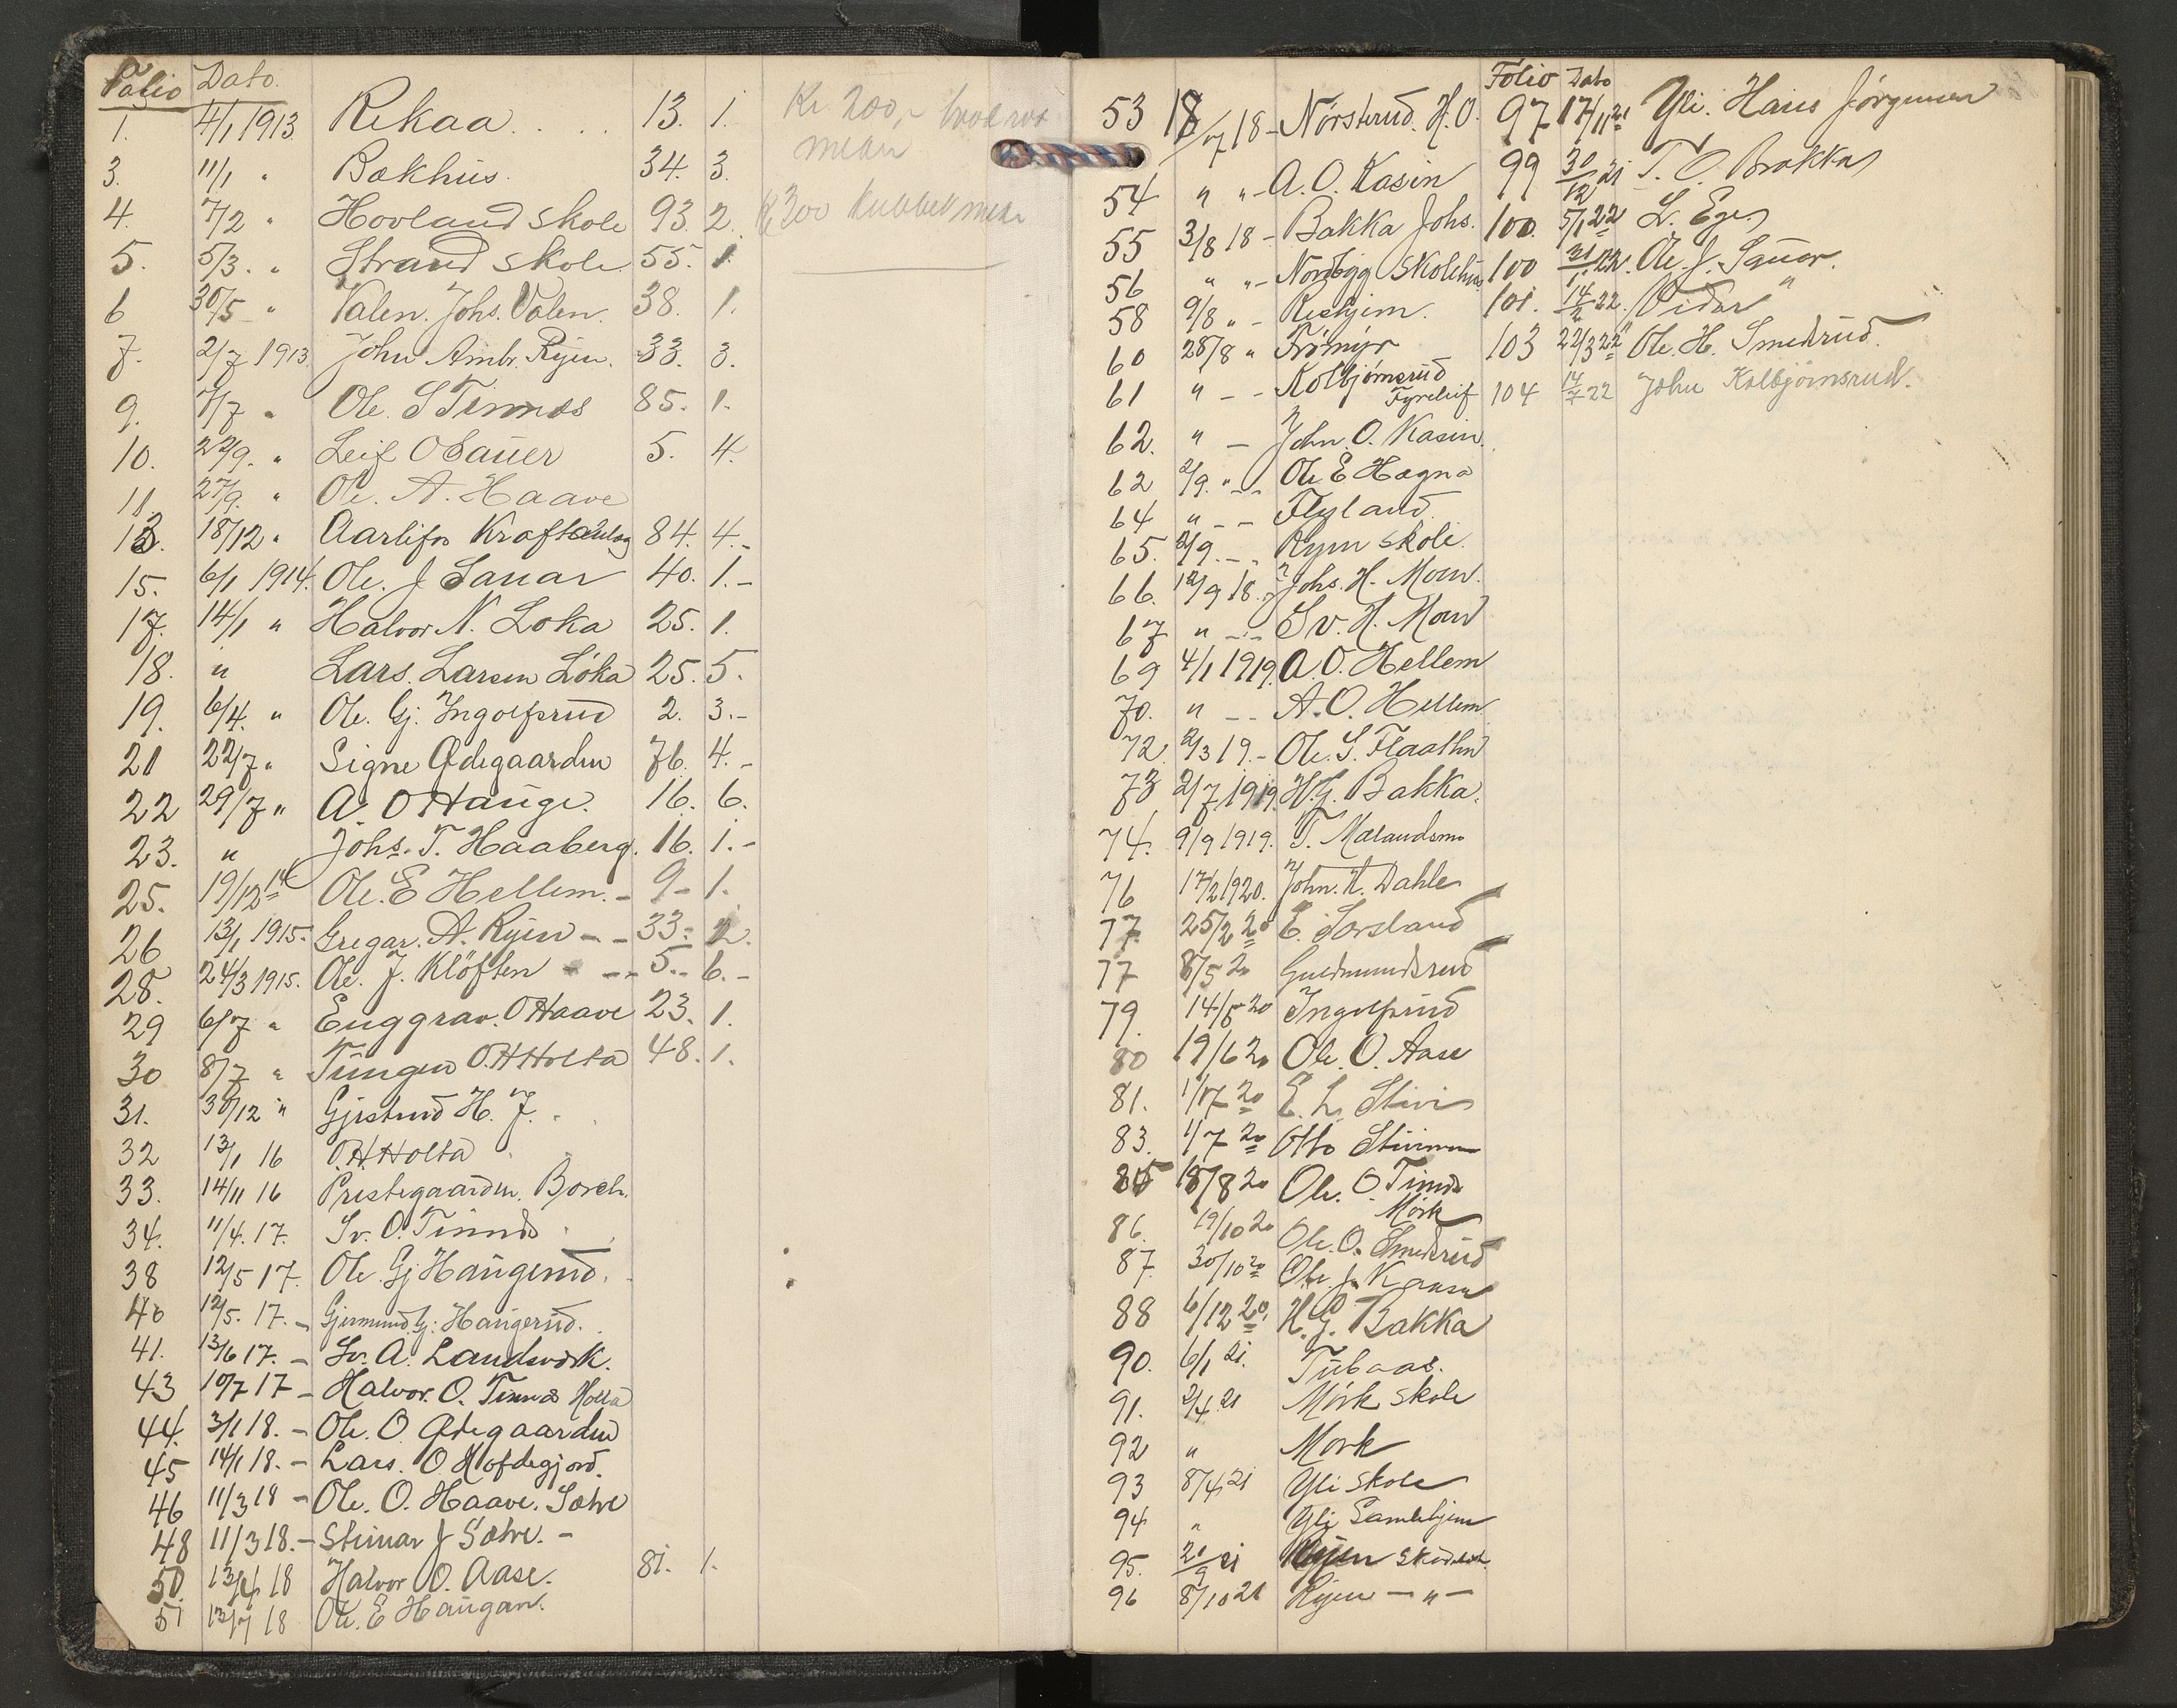 Folio Dato.
1. 4/1 1913 Rekaa . . . 13. 1.
3. 11/1 " Bakhus. 34. 3.
4. 7/2 " Hovland skole 93. 2.
5. 5/3. " Strand skole. 55. 1.
6 30/5 " Valen. Johs. Valen. 38. 1.
7. 2/7 1913. John Ambr. Ryen. 33. 3.
9. 7/7 " Ole. S Tinnes 85. 1.
10. 22/9. " Leif O Sauer 5. 4.
11. 27/9. " Ole. A. Haave
13. 18/12 " Aarlifos Kraftanlæg 84. 4.-
15. 6/1 1914. Ole. J Sauar 40. 1.-
17. 14/1 " Halvor N. Loka 25. 1.
18. " Lars. Larsen Löka 25. 5.
19. 6/4. " Ole. Gj. Ingolfsrud 2. 3.-
21 22/7 " Signe Ødegaarden 76. 4.-
22 29/7 " A. O Hauge. 16. 6.
23. " Johs. T. Haaberg. 16. 1.-
25. 19/12 14 Ole. E Hellem. - 9- 1.
26 13/1 1915. Gregar. A. Ryen - - 33. 2.
28. 24/3 1915. Ole. J. Klöften - -- 5.- 6.-
29 6/7 " Enggrav. O Haave 23. 1.
30 8/7 " Tungen O.H Holta 48. 1.
31. 30/12 " Gjestrud H. J.
32 13/1 16 O.H Holta
33. 14/11 16 Prestegaarden. Borch.
34. 11/4. 17. Sv. O. Tinnes
38 12/5 17. Ole. Gj Haugerud.
40 12/5. 17. - Gjermund. Gj. Haugerud.
41. 13/6 17. - Sv. A. Landsverk.
43 10/7 17 - Halvor. O. Tinnes Holta
44. 3/1 18. - Ole. O Ødegaarden
45 14/1 18. - Lars. O. Hofdegjord.
46 11/3 18 - Ole. O. Haave. Sætre
48 11/3 18. - Steinar J Sætre. -
50. 13/4 18 Halvor O. Aase. 81. 1.
51 13/7 18 Ole. E Haugan.
Kr 200,-
meier
Kr 300 kubbet meier
53 18/7 18 - Nörsterud. H. O.
54 " " - A. O. Kasin
55 3/8 18 - Bakka Johs.
56 " " - Nordbygg Skolehus
58 9/8 " - Reshjem.
60 28/8 " Frömyr
61 " - - Kolbjörnsrud
Fyreleif
62. " - John. O. Kasin.
62 2/9. " -- Ole E Hægna
64 " - - Flyland.
65. 2/9. - . Ryen skole.
66. 12/9 18. Johs. H. Moen.
67 " -.- Sv. H. Moen
69 4/1 1919. A. O. Hellem
70. " -- A. O. Hellem
72. 2/3 19. - Ole. S. Flaathn
73 2/7 1919. H. G. Bakka.
74. 9/9 1919. T. Mælandsmo
76 17/2 1920. John. H. Dahle
77. 25/2 20 E. Sørsland
77 8/5 20 Gudmundsrud
79. 14/5 20 Ingolfsrud
80 19/6 20 Ole. O. Aase
81. 1/7 20 E. L. Stivi
83. 1/7 20 Otto Stivimoen
85 18/8 20 Ole. O. Tinnes
Mörk
86. 19/10 20 Ole. O. Smedsrud
87. 30/10 20 Ole. J. Kaasa
88 6/12 20. H. G. Bakka
90. 6/1 21. Tubaas.
91. 2/4 21 Mörk skole
92 " Mork
93 8/4 21 Yli skole
94 " Yli Gamlehjem
95. 20/9 21 Ryen
96 8/10 21 Ryen - " -
Folio Dato
97 17/11 21 Yli. Hans Jörgensen
99 30/12 21 T. O Brakka
100. 5/1 22 L. Ege
100 31/1 22. Ole. J. Sauar.
101. 14/2 22. Vidar "
103 22/3 22 Ole. H. Smedsrud.
104 14/7 22 John Kolbjörnsrud.